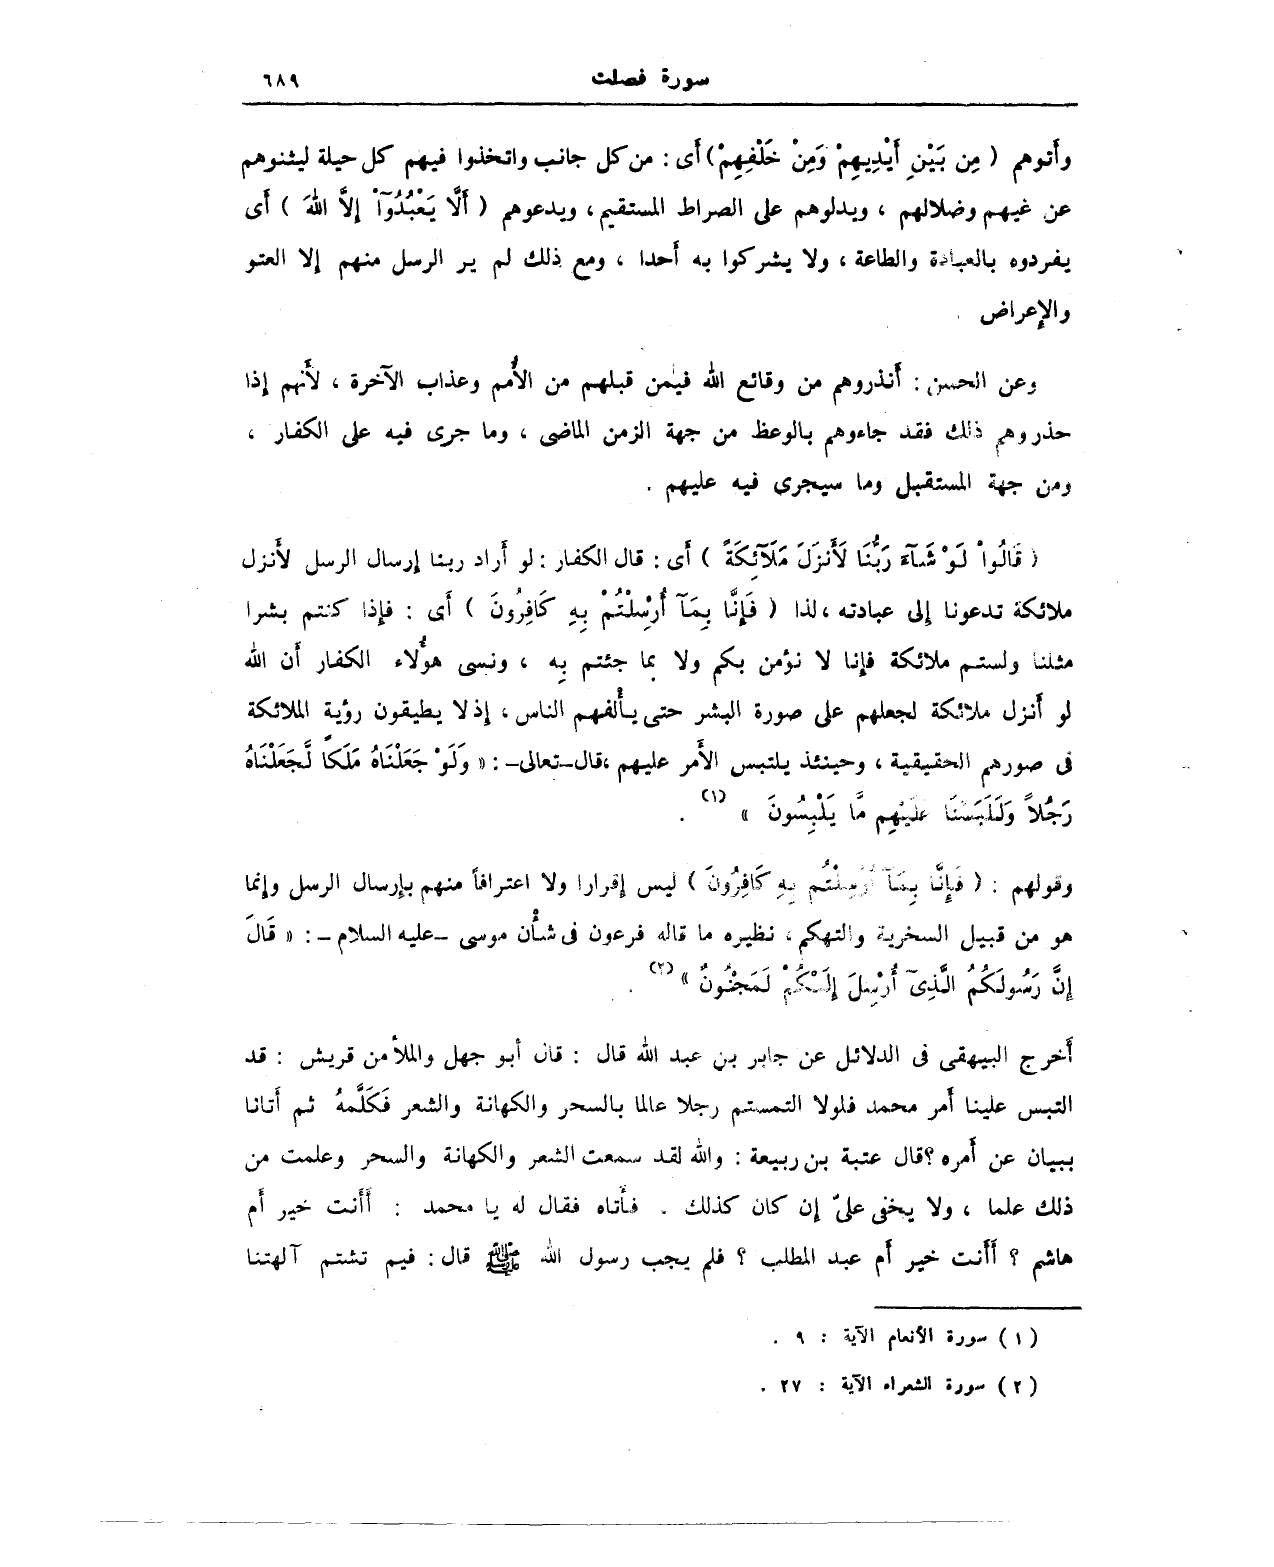 سورة فصلت ٦٨٩
وأتوهم ( مِن بَيْنِ أَيْدِيهِمْ وَمِنْ خَلْفِهِمْ) أى : من كل جانب واتخذوا فيهم كل حيلة ليثنوهم
عن غيهم وضلالهم ، ويدلوهم على الصراط المستقيم ، ويدعوهم ( أَلَّا يَعْبُدُوٓاْ إِلاَّ اللهَ ) أى
يفردوه بالعبادة والطاعة ، ولا يشركوا به أحدا ، ومع ذلك لم ير الرسل منهم إلا العتو
والإعراض .
وعن الحسن : أنذروهم من وقائع الله فيمن قبلهم من الأُمم وعذاب الآخرة ، لأَنهم إذا
حذروهم ذلك فقد جاءوهم بالوعظ من جهة الزمن الماضى ، وما جرى فيه على الكفار ،
ومن جهة المستقبل وما سيجرى فيه عليهم .
( قَالُواْ لَوْ شَآءَ رَبُّنَا لَأَنزَلَ مَلَآئِكَةً ) أى : قال الكفار : لو أراد ربنا إرسال الرسل لأَنزل
ملائكة تدعونا إلى عبادته ، لذا ( فَإِنَّا بِمَآ أُرْسِلْتُمْ بِهِ كَافِرُونَ ) أى : فإذا كنتم بشرا
مثلنا ولستم ملائكة فإنا لا نؤمن بكم ولا بما جئتم به ، ونسى هؤُلاء الكفار أن الله
لو أنزل ملائكة لجعلهم على صورة البشر حتى يأْلفهم الناس ، إذ لا يطيقون رؤية الملائكة
فى صورهم الحقيقية ، وحينئذ يلتبس الأَمر عليهم ، قال_تعالى_: « وَلَوْ جَعَلْنَاهُ مَلَكاً لَّجَعَلْنَاهُ
رَجُلاً وَلَلَبَسْنَا عَلَيْهِم مَّا يَلْبِسُونَ » (١) .
وقولهم : ( فَإِنَّا بِمَآ أُرْسِلْتُم بِهِ كَافِرُونَ ) ليس إقرارا ولا اعترافاً منهم بإرسال الرسل وإنما
هو من قبيل السخرية والتهكم ، نظيره ما قاله فرعون فى شأْن موسى _عليه السلام_ : « قَالَ
إِنَّ رَسُولَكُمُ الَّذِىٓ أُرْسِلَ إِلَيْكُمْ لَمَجْنُونٌ » (٢) .
أخرج البيهقى فى الدلائل عن جابر بن عبد الله قال : قال أبو جهل والملأ من قريش : قد
التبس علينا أمر محمد فلولا التمستم رجلا عالما بالسحر والكهانة والشعر فَكَلَّمهُ ثم أتانا
ببيان عن أمره ؟ قال عتبة بن ربيعة : والله لقد سمعت الشعر والكهانة والسحر وعلمت من
ذلك علما ، ولا يخفى علىّ إن كان كذلك . فأتاه فقال له يا محمد : أَأنت خير أم
هاشم ؟ أَأنت خير أم عبد المطلب ؟ فلم يجب رسول الله ﷺ قال : فيم تشتم آلهتنا
( ١ ) سورة الأنعام الآية : ٩ .
( ٢ ) سورة الشعراء الآية : ٢٧ .